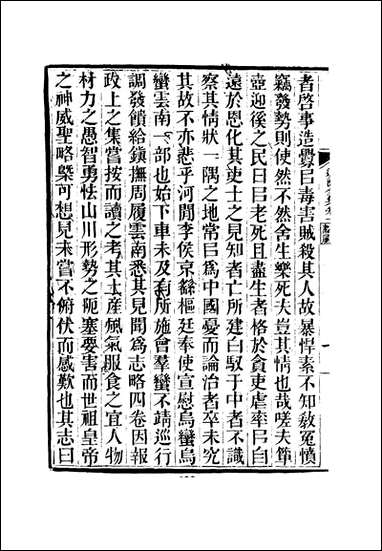 者啓事造釁㠯毒害賊殺其人故暴悍素不知敎冤憤
竊發勢則使然不然舍生樂死夫豈其情也哉嗟夫箪
壺迎後之民日㠯老死且盡生者格於貪吏虐率㠯自
遠於恩化其吏士之見知者亡所建白馭于中者不識
察其情狀一隅之地常㠯爲中國憂而論治者卒未究
其故不亦悲乎河閒李侯京繇樞廷奉使宣慰烏蠻烏
蠻雲南一部也始下車未及有所施會羣蠻不靖巡行
調發饋給鎮撫周履雲南悉其見聞爲志略四卷因報
政上之集嘗按而讀之考其土產風氣服食之宜人物
材力之愚智勇怯山川形勢之阨塞要害而世祖皇帝
之神威聖略槩可想見未嘗不俯伏而感歎也其志曰